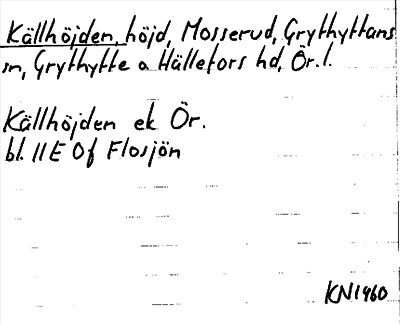 Källhöjden, höjd, Mosserud, Grythyttans
sn, Grythytte o Hällefors hd, Ör. l.
Källhöjden ek Ör.
bl. 11E 0f Flosjön
KN1960